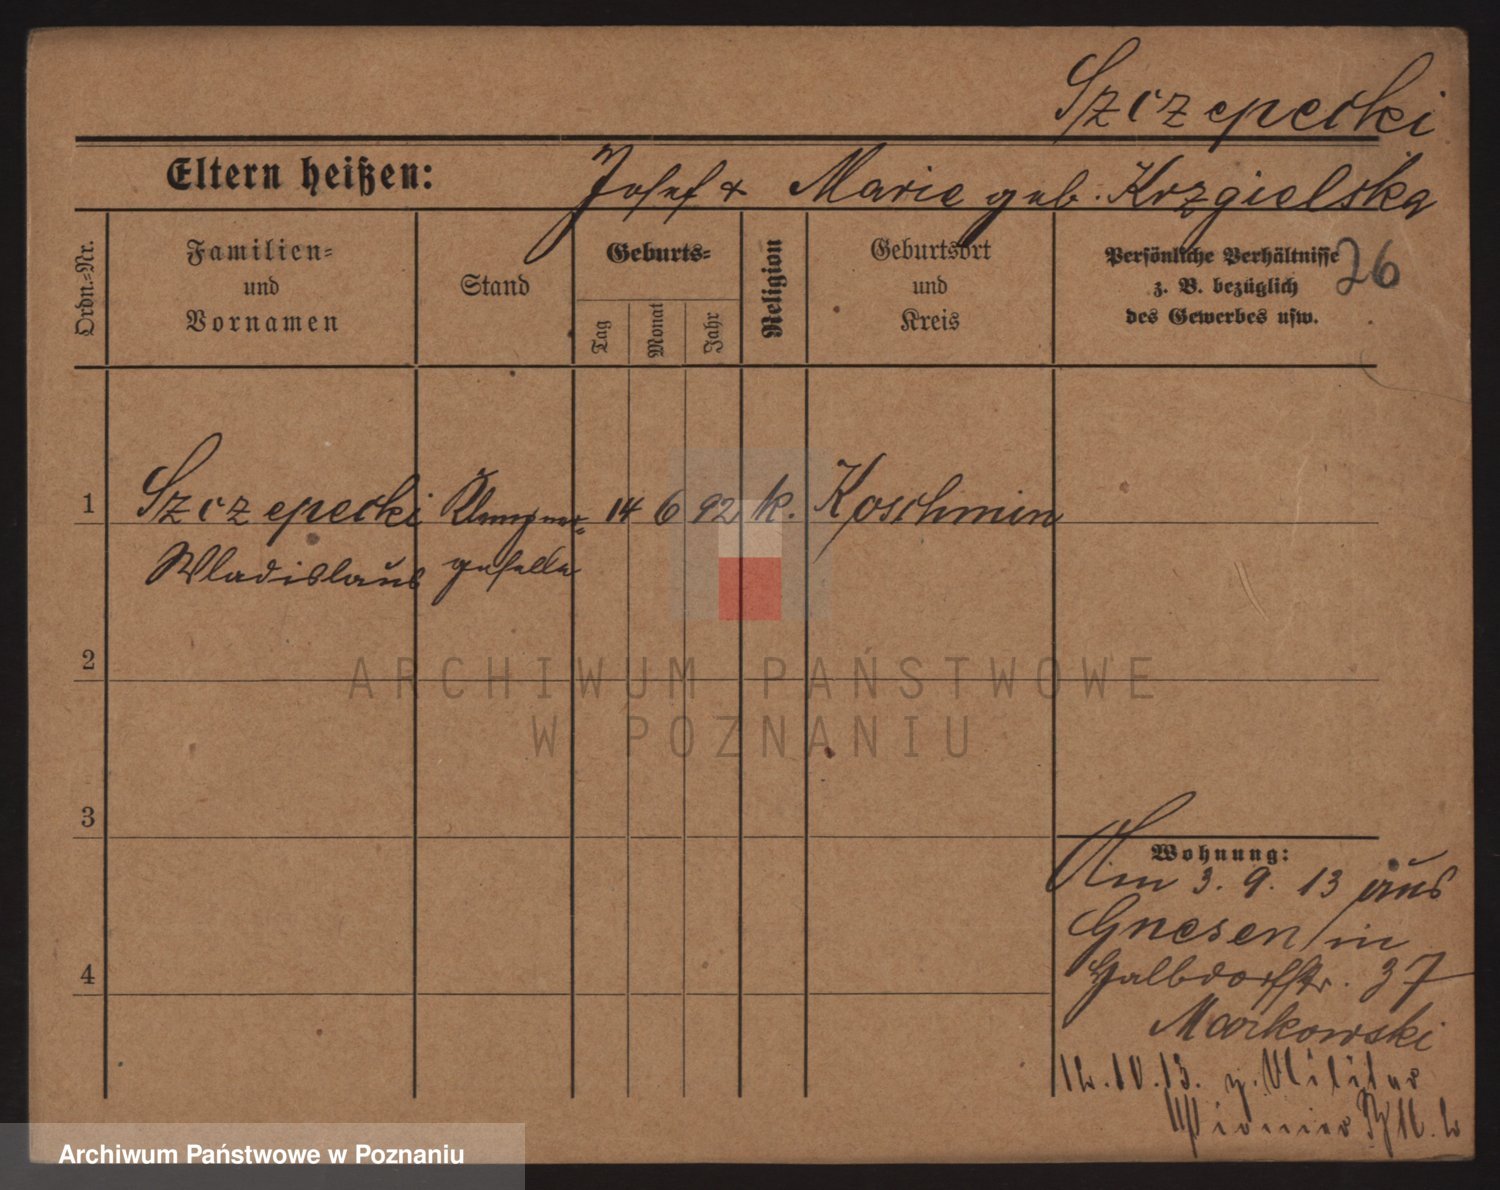 Szczepecki
Eltern heißen: Josef & Marie geb. Krzgielska
Ordn.-Nr.
Familien-
und
Vornamen
Stand
Geburts-
Tag
Monat
Jahr
Religion
Geburtsort
und
Kreis
Persönliche Verhältnisse
z. B. bezüglich
des Gewerbes usw.
26
1 Szczepecki Klempner- 14 6 92 k. Koschmin
Wladislaus geselle
2
3
4
Wohnung:
Am 3. 9. 13 aus
Gnesen in
Halbdorfstr. 37
Markowski
12.10.13. z. Militär
Pionier
ARCHIWUM PAŃSTWOWE
W POZNANIU
Archiwum Państwowe w Poznaniu